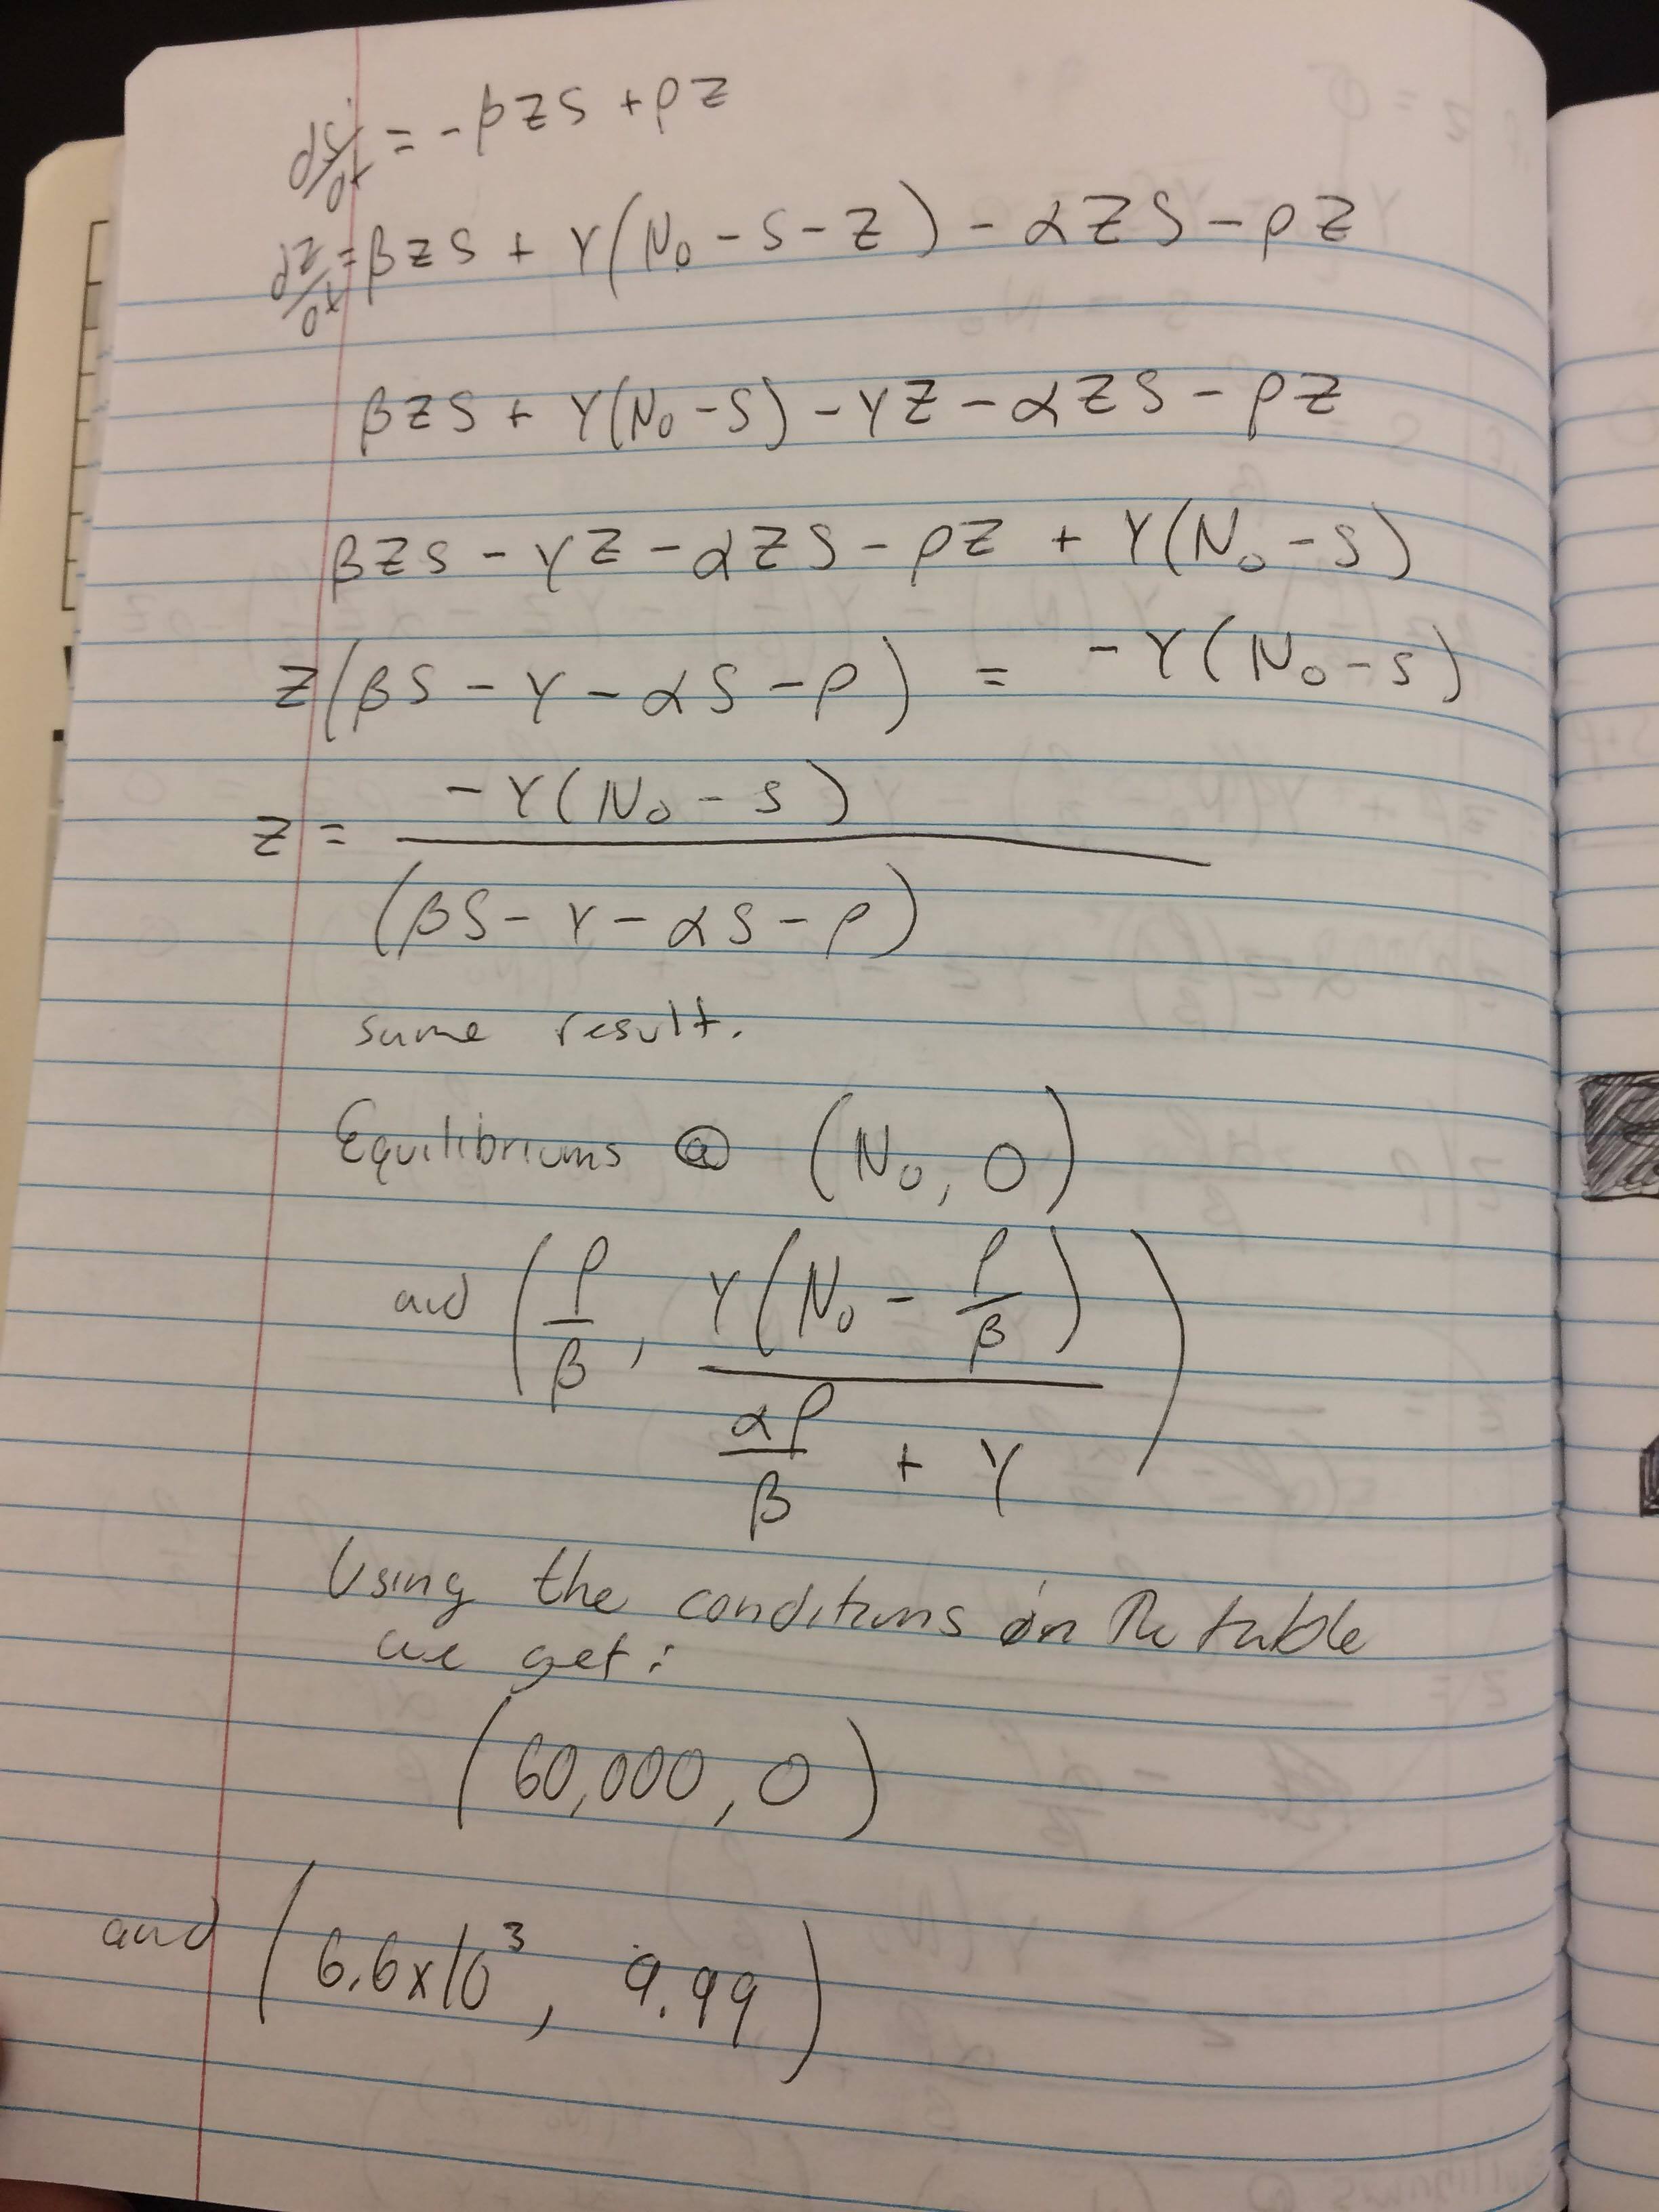 dS/dt = -βZS + ρZ
dZ/dt = βZS + γ(N₀ - S - Z) - αZS - ρZ
βZS + γ(N₀ - S) - γZ - αZS - ρZ
βZS - γZ - αZS - ρZ + γ(N₀ - S)
Z(βS - γ - αS - ρ) = -γ(N₀ - S)
Z = -γ(N₀ - S) / (βS - γ - αS - ρ)
same result.
Equilibriums @ (N₀, 0)
and (ρ/β, γ(N₀ - ρ/β) / (αρ/β + γ))
Using the conditions in the table
we get:
(60,000, 0)
and (6.6x10³, 9.99)